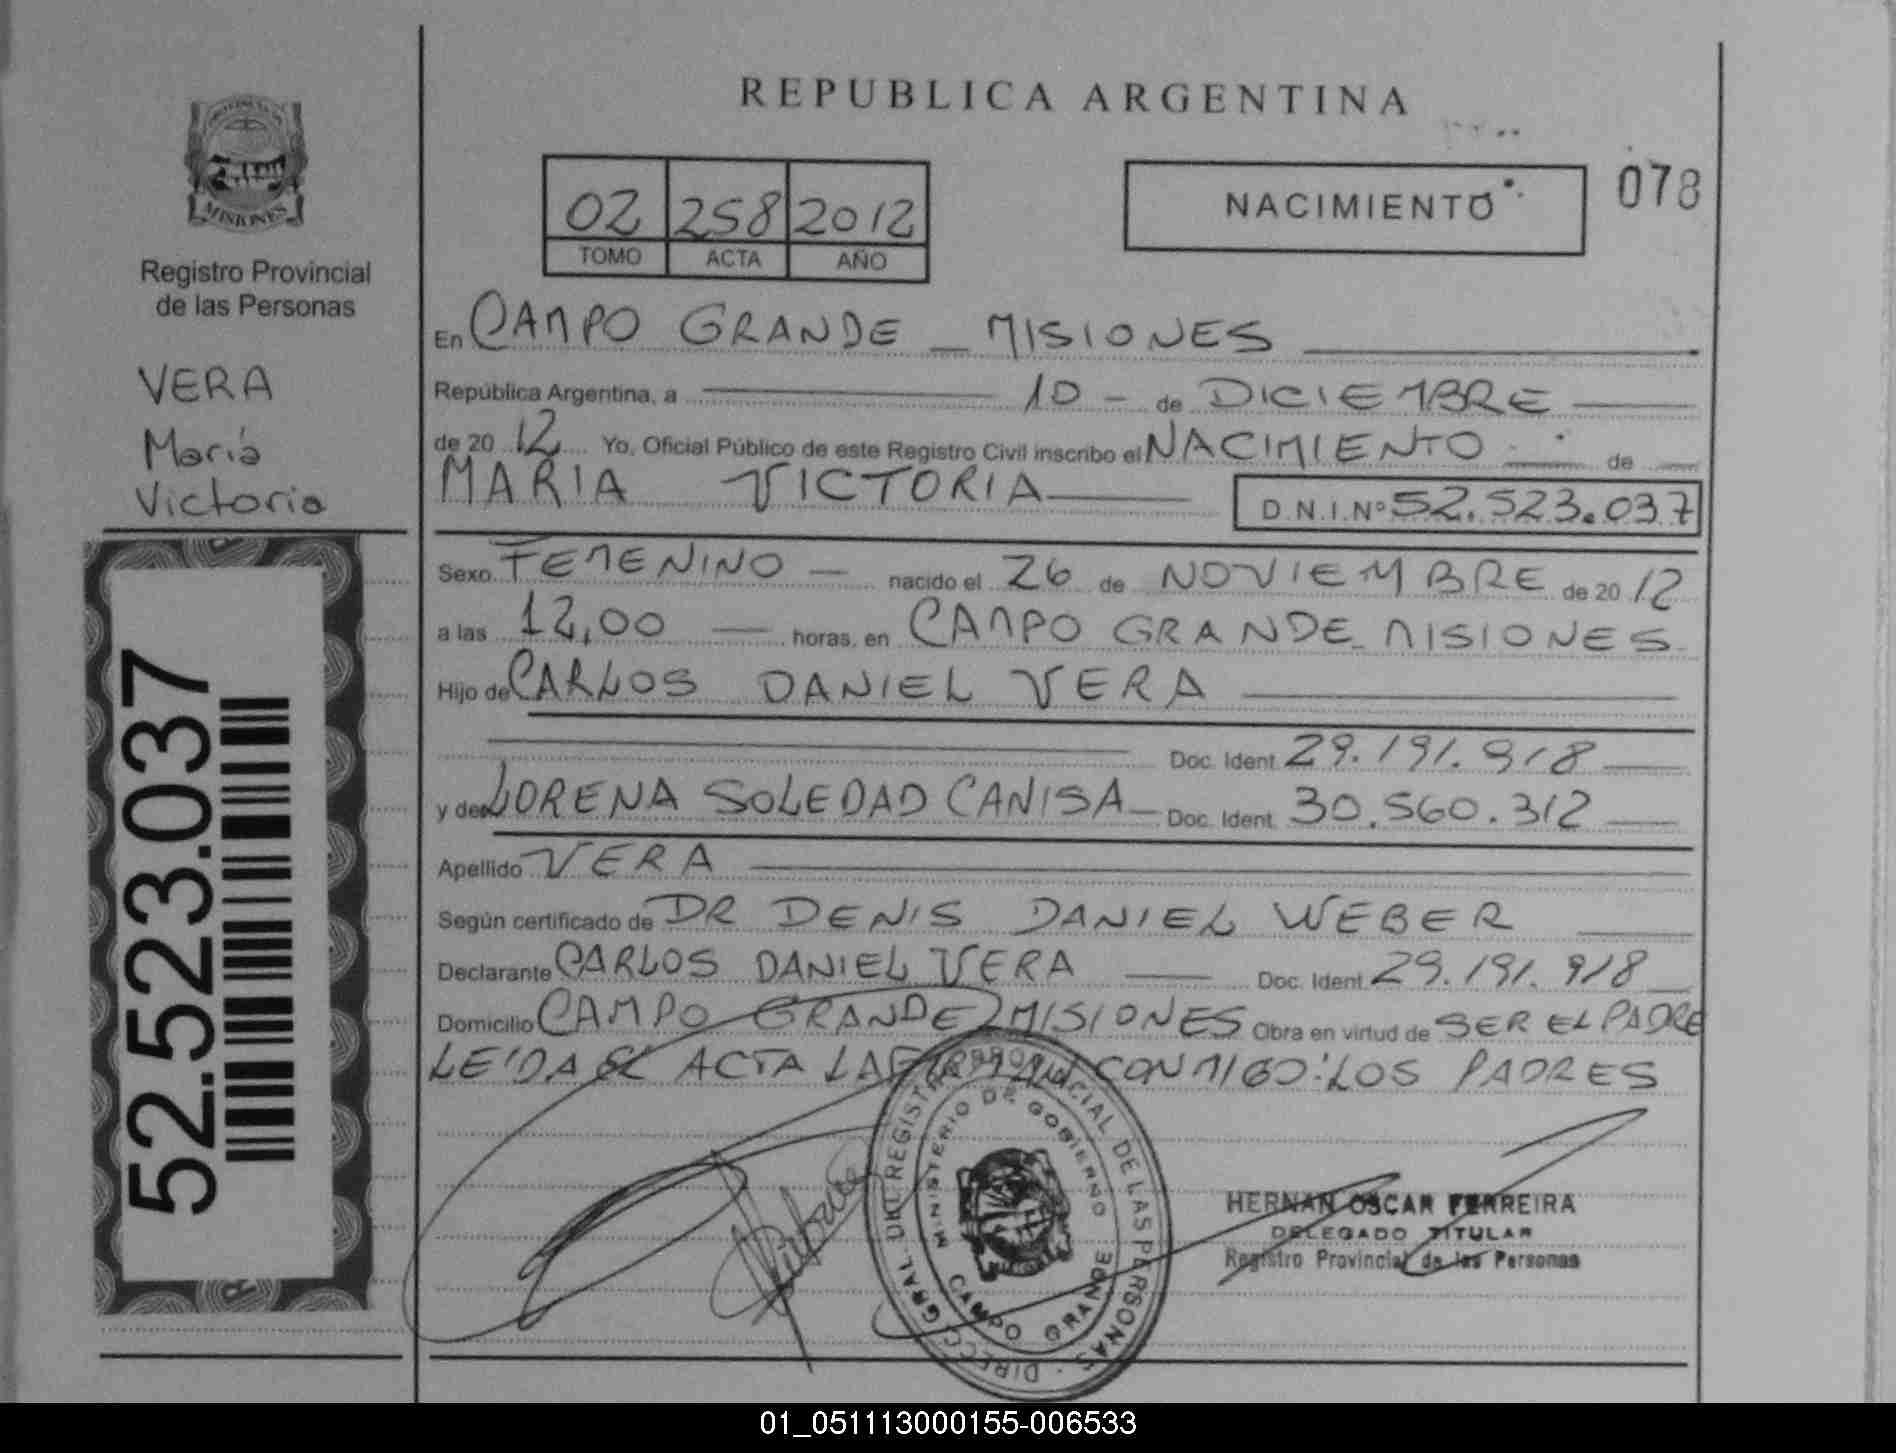 REPUBLICA ARGENTINA
MISIONES
Registro Provincial
de las Personas
VERA
María
Victoria
52.523.037
02 258 2012
TOMO ACTA AÑO
NACIMIENTO
078
En CAMPO GRANDE _ MISIONES
República Argentina, a 10 - de DICIEMBRE
de 20 12 Yo, Oficial Público de este Registro Civil inscribo el NACIMIENTO de
MARIA VICTORIA D.N.I.Nº 52.523.037
Sexo FEMENINO — nacido el 26 de NOVIEMBRE de 20 12
a las 12,00 — horas, en CAMPO GRANDE_ MISIONES
Hijo de CARLOS DANIEL VERA
Doc. Ident. 29.191.918
y de LORENA SOLEDAD CANISA — Doc. Ident. 30.560.312
Apellido VERA
Según certificado de DR DENIS DANIEL WEBER
Declarante CARLOS DANIEL VERA — Doc. Ident. 29.191.918
Domicilio CAMPO GRANDE MISIONES Obra en virtud de SER EL PADRE
LEIDA EL ACTA LA CONMIGO: LOS PADRES
DIRECC. GRAL. DEL REGISTRO PROVINCIAL DE LAS PERSONAS
MINISTERIO DE GOBIERNO
CAMPO GRANDE
HERNAN OSCAR FERREIRA
DELEGADO TITULAR
Registro Provincial de las Personas
01_051113000155-006533